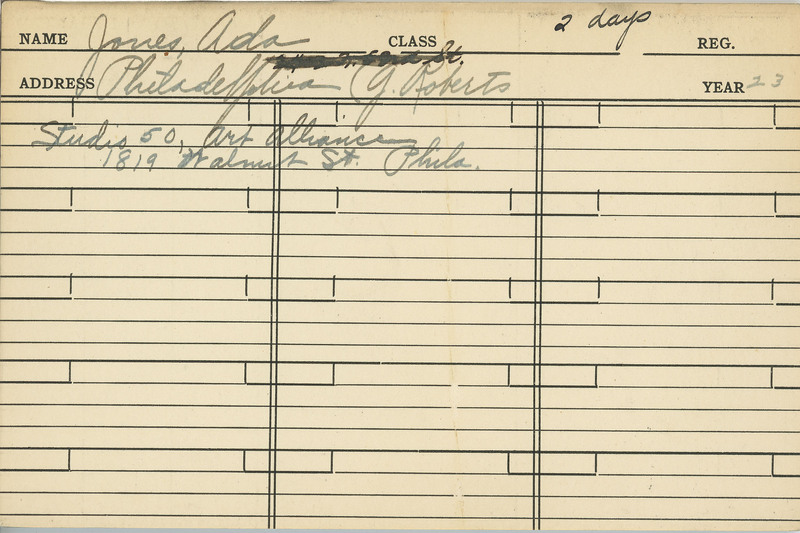 NAME Jones, Ada CLASS 2 days REG.
St.
ADDRESS Philadelphia G. Roberts YEAR 23
Studio 50, Art Alliance
1819 Walnut St. Phila.